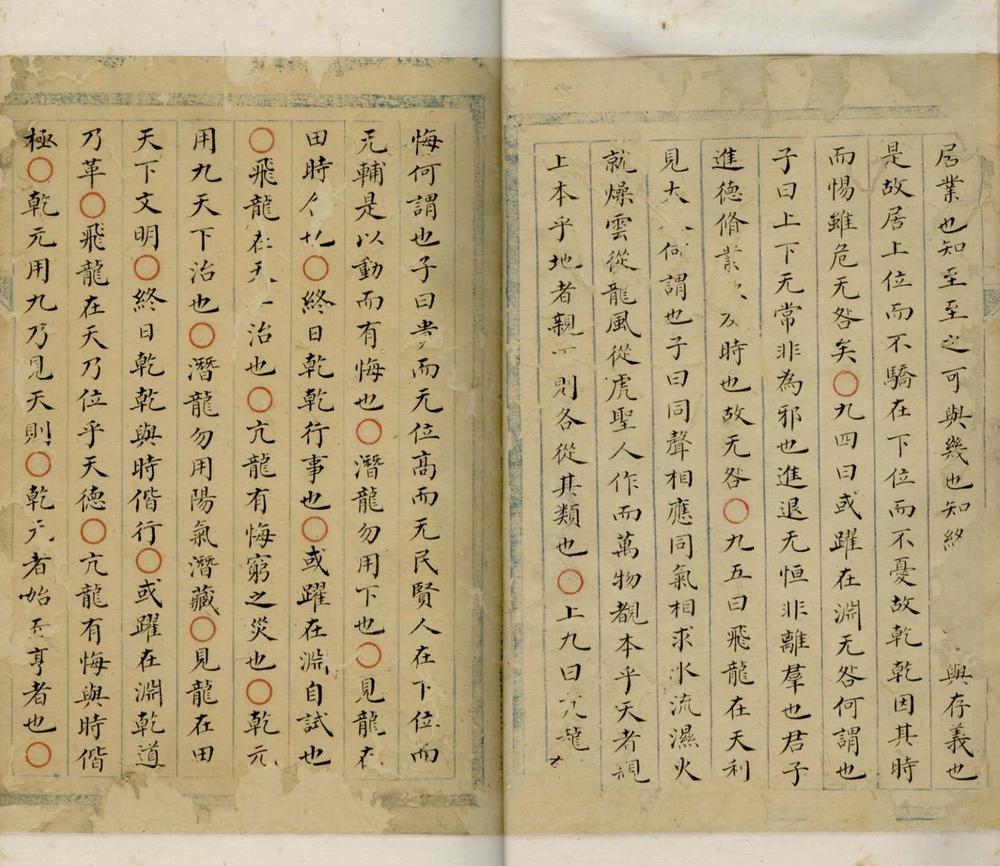 居業也知至至之可與幾也知終與存義也
是故居上位而不驕在下位而不憂故乾乾因其時
而惕雖危无咎矣〇九四曰或躍在淵无咎何謂也
子曰上下无常非為邪也進退无恒非離羣也君子
進德脩業及時也故无咎〇九五曰飛龍在天利
見大人何謂也子曰同聲相應同氣相求水流濕火
就燥雲從龍風從虎聖人作而萬物覩本乎天者親
上本乎地者親下則各從其類也〇上九曰亢龍
悔何謂也子曰貴而无位高而无民賢人在下位而
无輔是以動而有悔也〇潛龍勿用下也〇見龍在
田時也〇終日乾乾行事也〇或躍在淵自試也
〇飛龍在天治也〇亢龍有悔窮之災也〇乾元
用九天下治也〇潛龍勿用陽氣潛藏〇見龍在田
天下文明〇終日乾乾與時偕行〇或躍在淵乾道
乃革〇飛龍在天乃位乎天德〇亢龍有悔與時偕
極〇乾元用九乃見天則〇乾元者始而亨者也〇